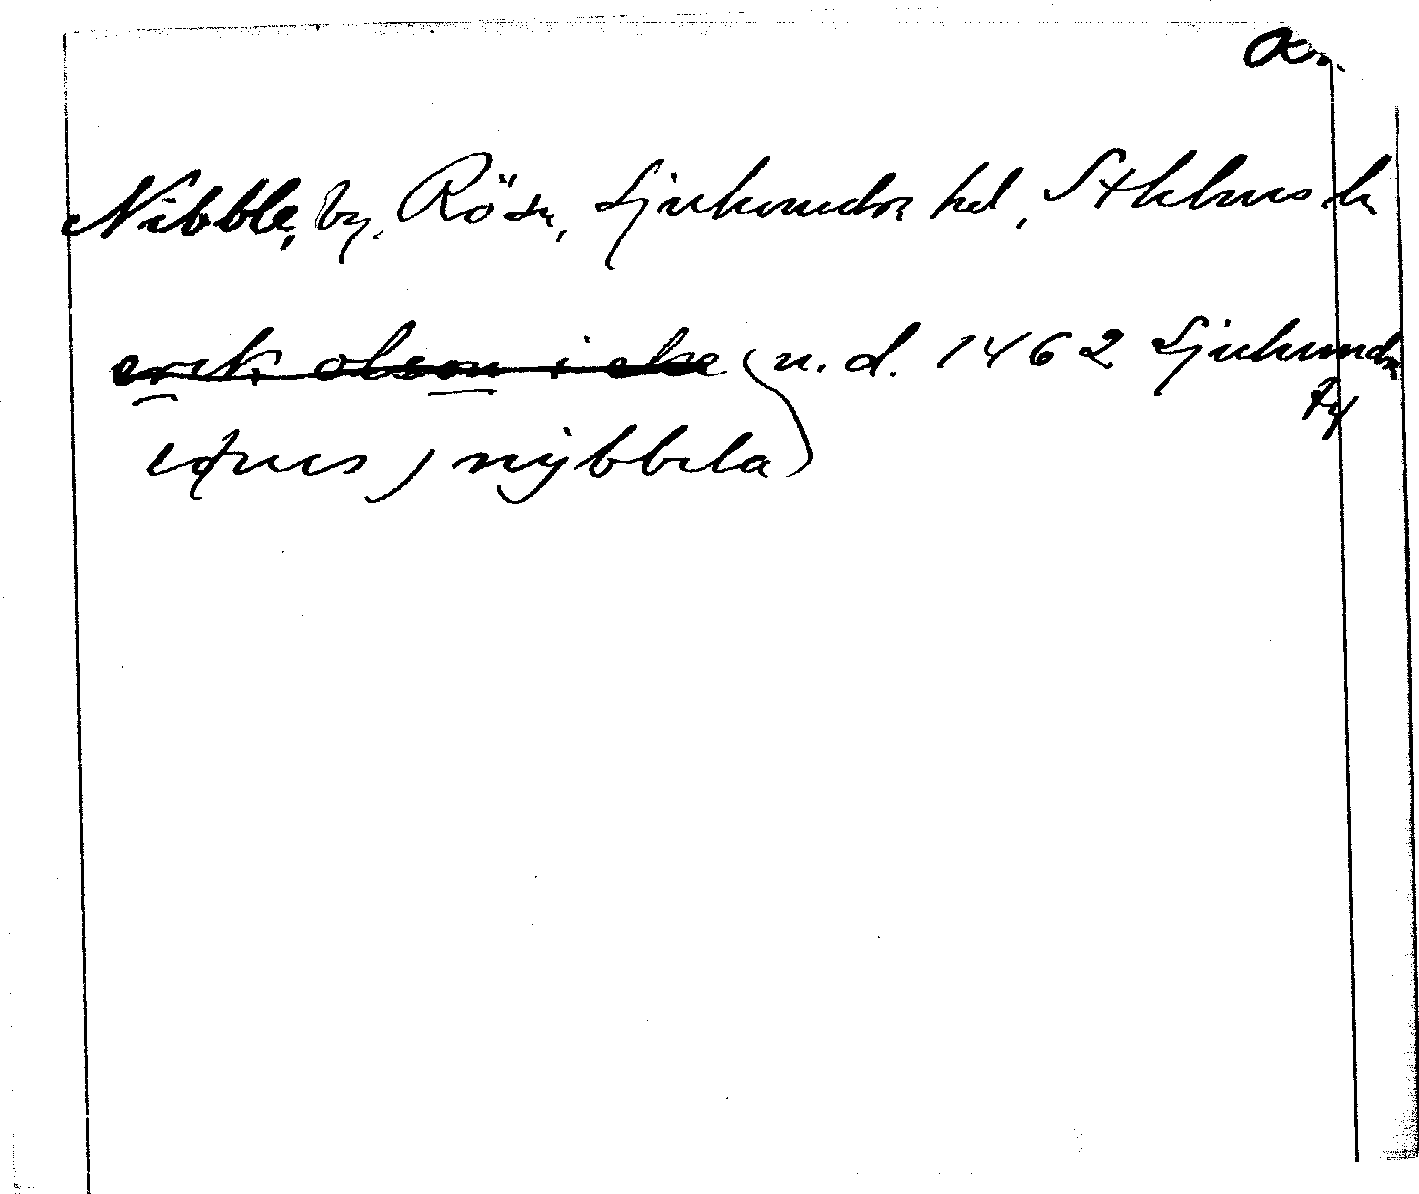 Nibble, by, Rö sn, Sjuhundra hd, Sthlms ln
erik olson i eke (u.d. 1462 Sjuhundr
nybbela)